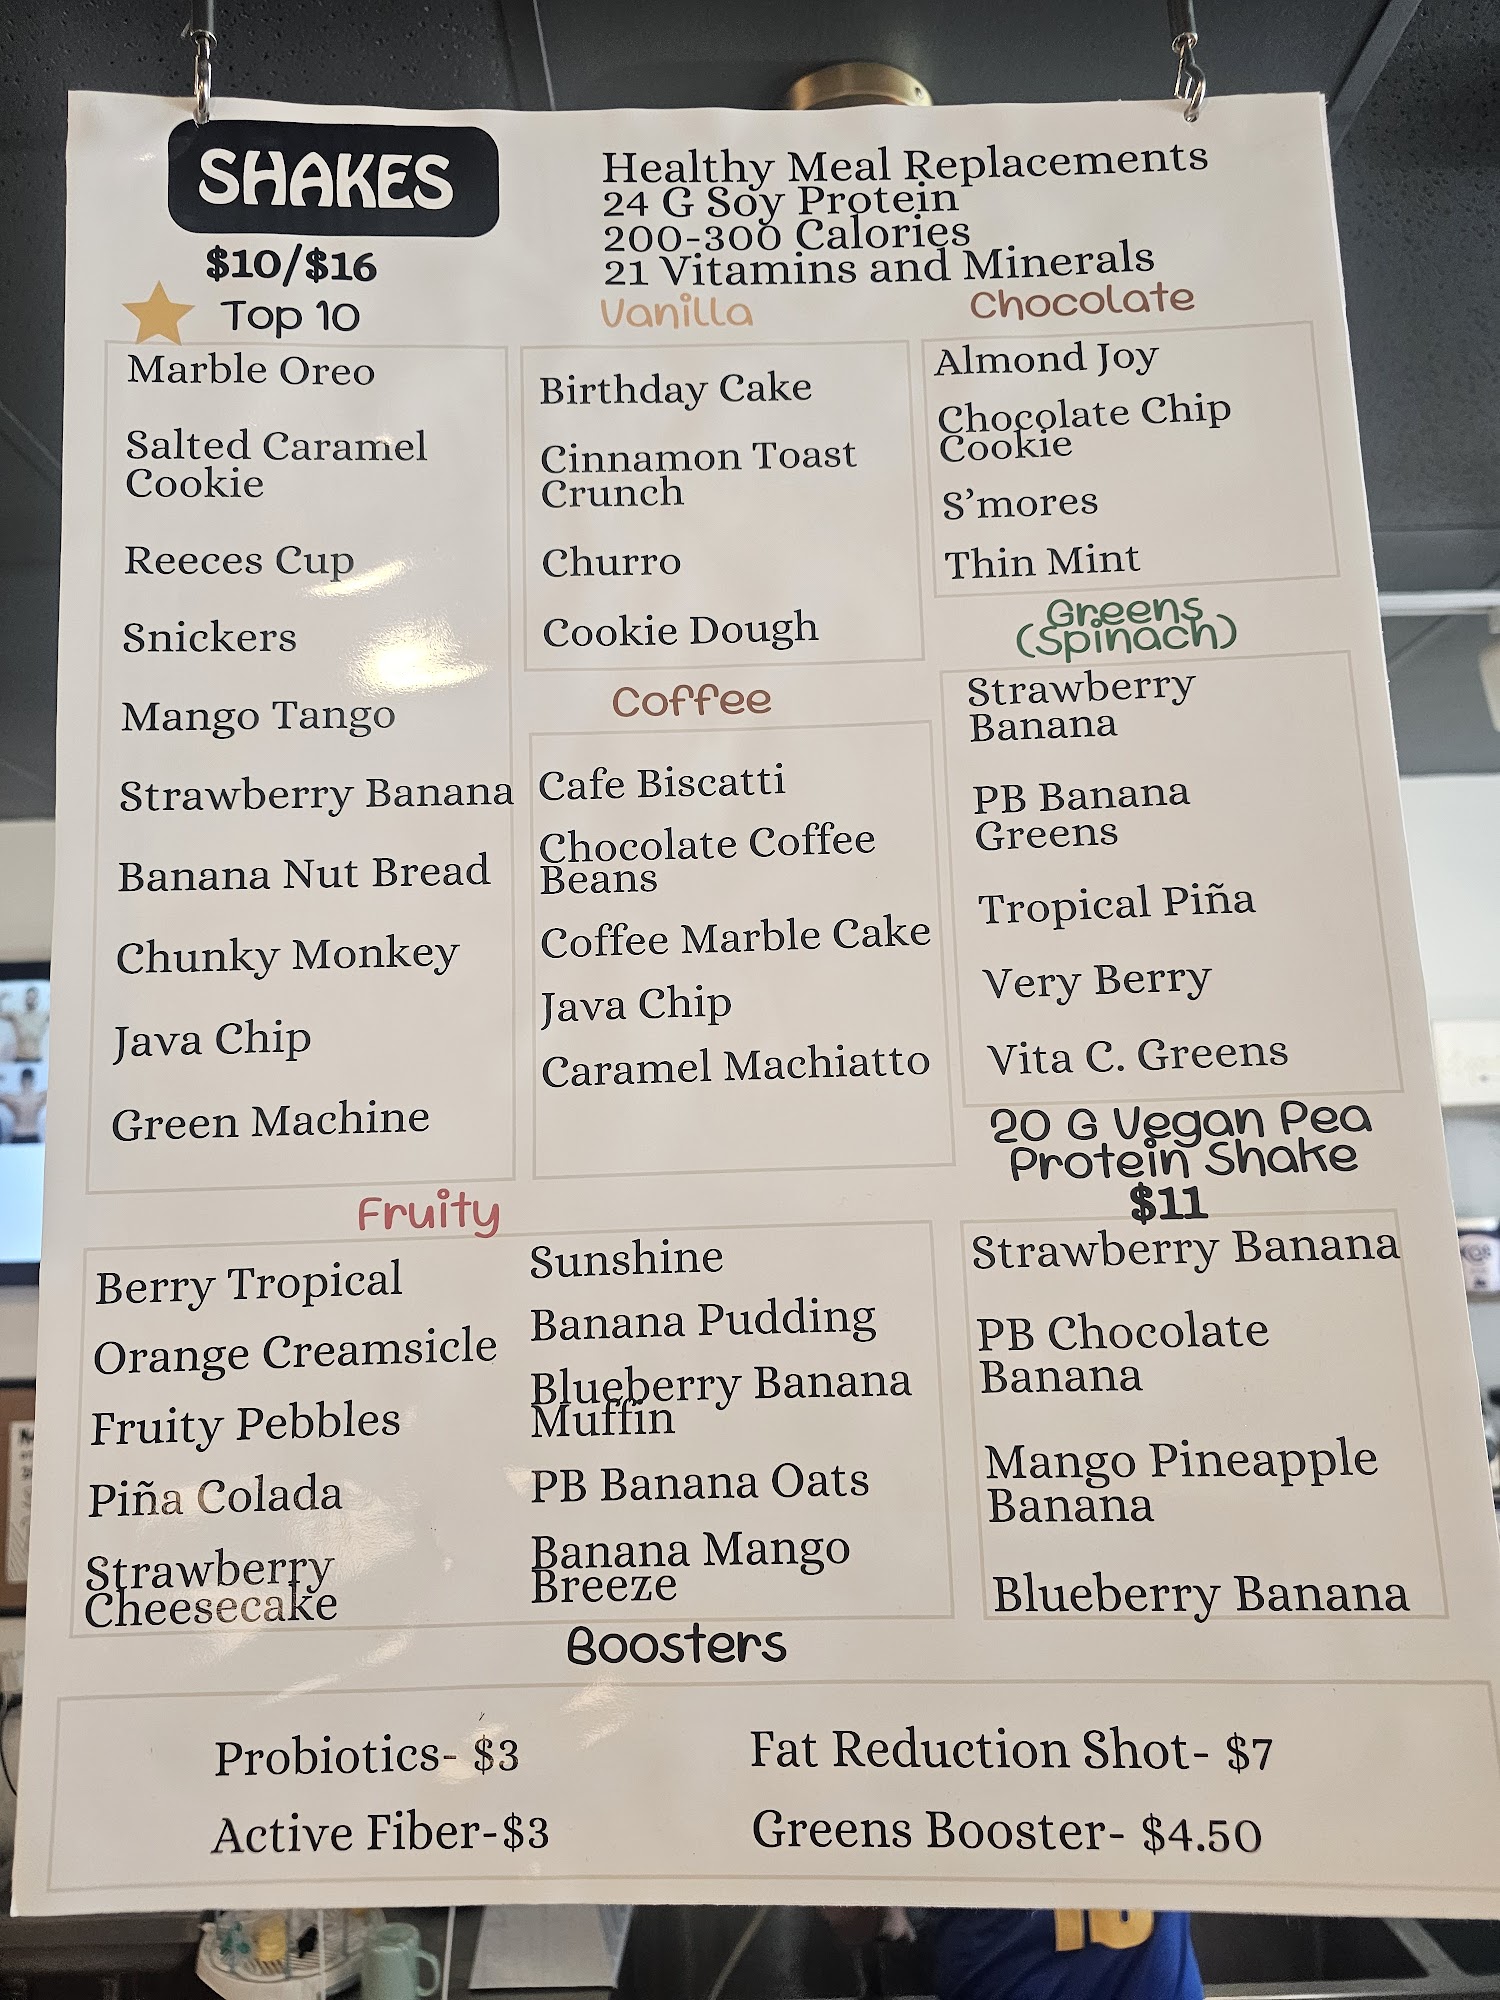 SHAKES
$10/$16
Healthy Meal Replacements
24 G Soy Protein
200-300 Calories
21 Vitamins and Minerals
Top 10
Marble Oreo
Salted Caramel
Cookie
Reeces Cup
Snickers
Mango Tango
Strawberry Banana
Banana Nut Bread
Chunky Monkey
Java Chip
Green Machine
Vanilla
Birthday Cake
Cinnamon Toast
Crunch
Churro
Cookie Dough
Coffee
Cafe Biscatti
Chocolate Coffee
Beans
Coffee Marble Cake
Java Chip
Caramel Machiatto
Chocolate
Almond Joy
Chocolate Chip
Cookie
S’mores
Thin Mint
Greens
(Spinach)
Strawberry
Banana
PB Banana
Greens
Tropical Piña
Very Berry
Vita C. Greens
20 G Vegan Pea
Protein Shake
$11
Strawberry Banana
PB Chocolate
Banana
Mango Pineapple
Banana
Blueberry Banana
Fruity
Berry Tropical
Orange Creamsicle
Fruity Pebbles
Piña Colada
Strawberry
Cheesecake
Sunshine
Banana Pudding
Blueberry Banana
Muffin
PB Banana Oats
Banana Mango
Breeze
Boosters
Probiotics- $3
Active Fiber-$3
Fat Reduction Shot- $7
Greens Booster- $4.50